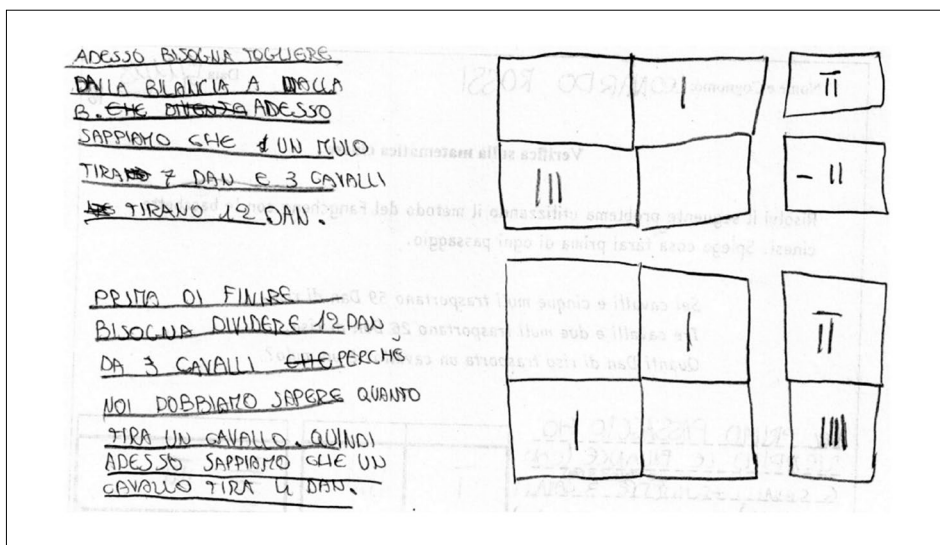 ADESSO BISOGNA TOGLIERE
DALLA BILANCIA A
B. CHE DIVENTA ADESSO
SAPPIAMO CHE UN MULO
TIRA 7 DAN E 3 CAVALLI
TIRANO 12 DAN.
PRIMA DI FINIRE
BISOGNA DIVIDERE 12 DAN
DA 3 CAVALLI CHE PERCHÉ
NOI DOBBIAMO SAPERE QUANTO
TIRA UN CAVALLO. QUINDI
ADESSO SAPPIAMO CHE UN
CAVALLO TIRA 4 DAN.